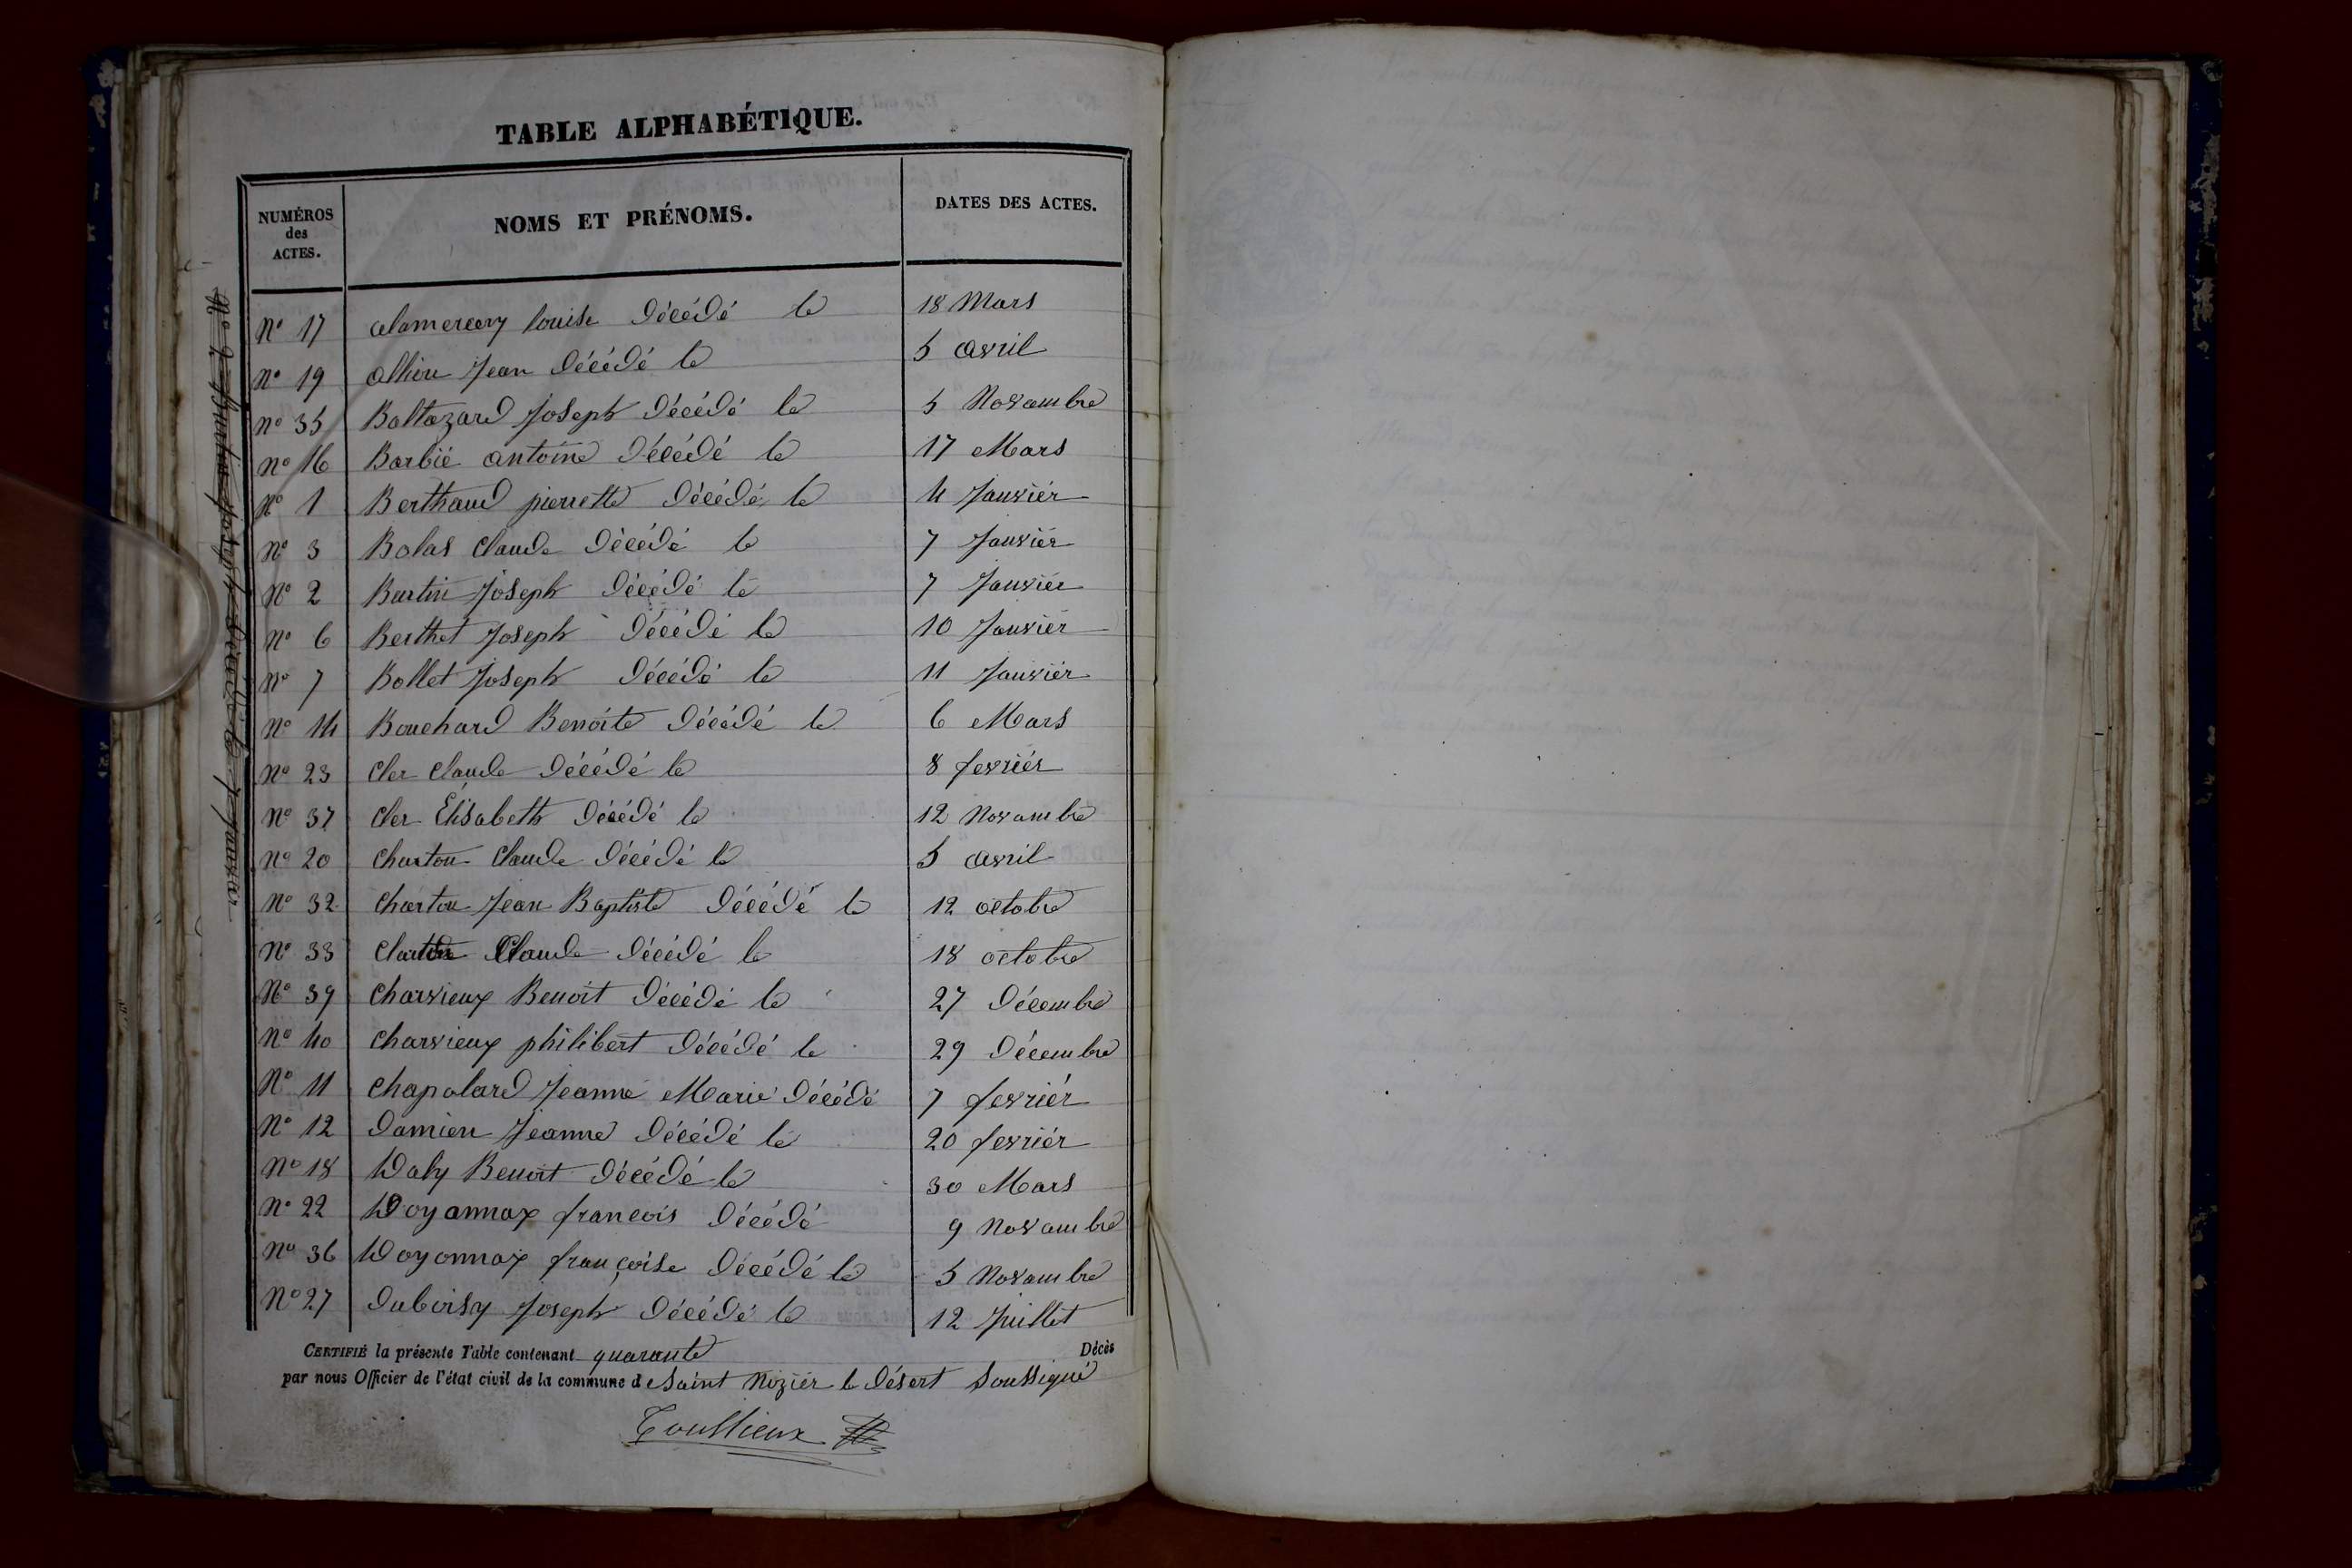 TABLE ALPHABÉTIQUE.
NUMÉROS des ACTES. NOMS ET PRÉNOMS. DATES DES ACTES.
N° 17 alamercery louise décédé le 18 Mars
N° 19 allion Jean décédé le 5 avril
N° 35 Baltazard Joseph décédé le 5 Novambre
N° 16 Barbié antoine décédé le 17 Mars
N° 1 Berthaud pierrette décédé le 4 Janviér
N° 3 Bolas Claude décédé le 7 Janviér
N° 2 Burtin Joseph décédé le 7 Janviér
N° 6 Berthet Joseph décédé le 10 Janviér
N° 7 Bollet Joseph décédé le 11 Janviér
N° 14 Bouchard Benoite décédé le 6 Mars
N° 23 Cler Claude décédé le 8 fevriér
N° 37 Cler Élisabeth décédé le 12 Novambre
N° 20 Charton Claude décédé le 5 avril
N° 32 Charton Jean Baptiste décédé le 12 octobre
N° 33 Claude décédé le 18 octobre
N° 39 Charvieux Benoit décédé le 27 décembre
N° 40 Charvieux philibert décédé le 29 décembre
N° 11 Chapolard Jeanne Marie décédé 7 fevriér
N° 12 Damien Jeanne décédé le 20 fevriér
N° 18 Daly Benoit décédé le 30 Mars
N° 22 Doyannax francois décédé 9 Novambre
N° 36 Doyonnax françoise décédé le 5 Novambre
N° 27 Duboisy Joseph décédé le 12 Juillet
CERTIFIÉ la présente Table contenant quarante Décès
par nous Officier de l'état civil de la commune de Saint Niziér le désert Soussigné
Toussieux
N° 2 Joseph décédé le 7 janviér